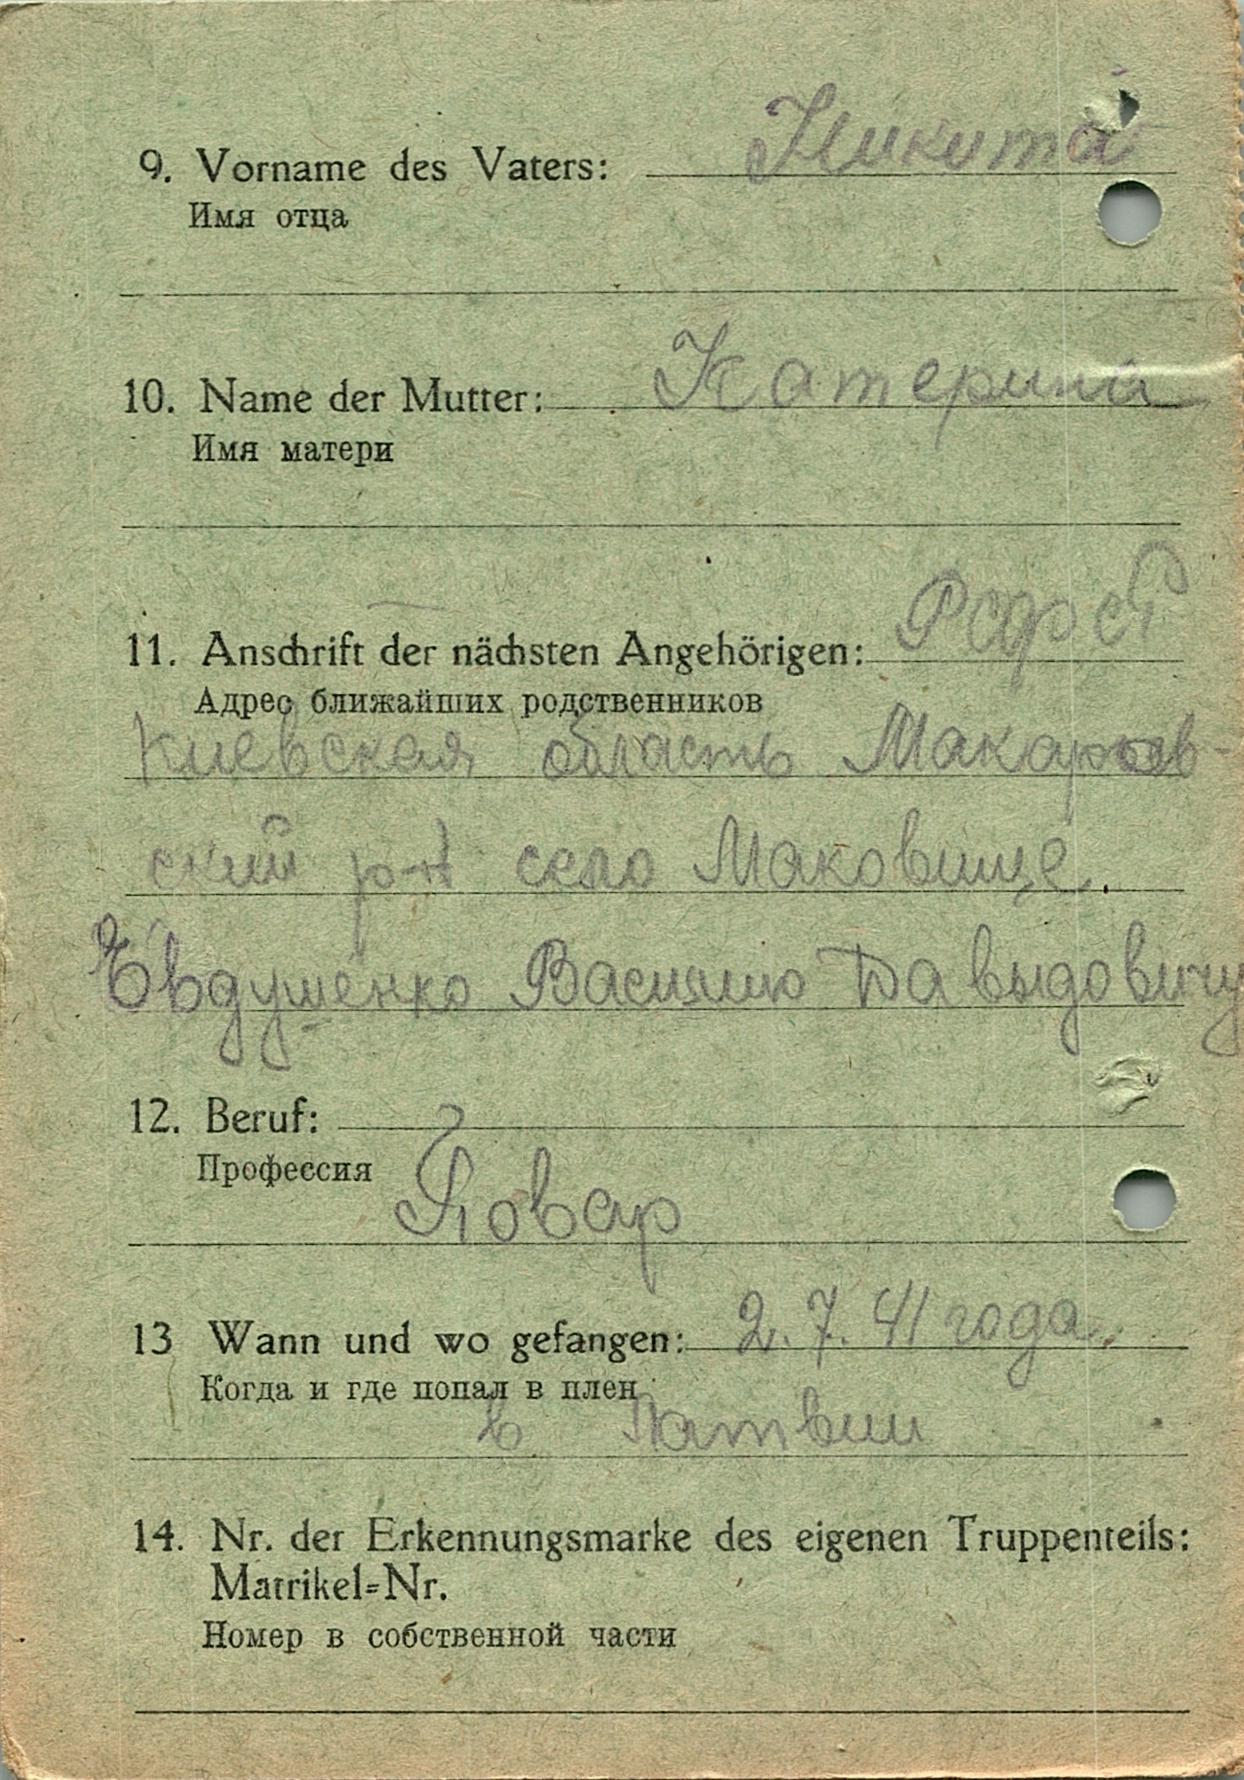 9. Vorname des Vaters: Никита
Имя отца
10. Name der Mutter: Катерина
Имя матери
11. Anschrift der nächsten Angehörigen: РСФСР
Адрес ближайших родственников
Киевская область Макаров-
ский р-н село Маковище.
Евдушенко Василию Давыдовичу
12. Beruf:
Профессия
Повар
13 Wann und wo gefangen: 2. 7. 41 года.
Когда и где попал в плен
в Латвии
14. Nr. der Erkennungsmarke des eigenen Truppenteils:
Matrikel=Nr.
Номер в собственной части